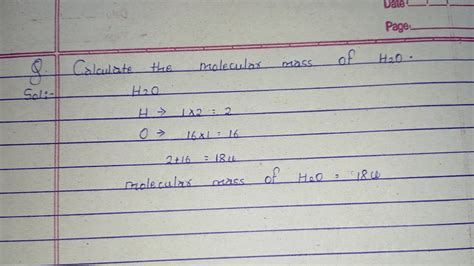 Date:
Page:
Q. Calculate the molecular mass of H2O.
Sol:-
H2O
H → 1x2 = 2
O → 16x1 = 16
2+16 = 18u
molecular mass of H2O = 18u